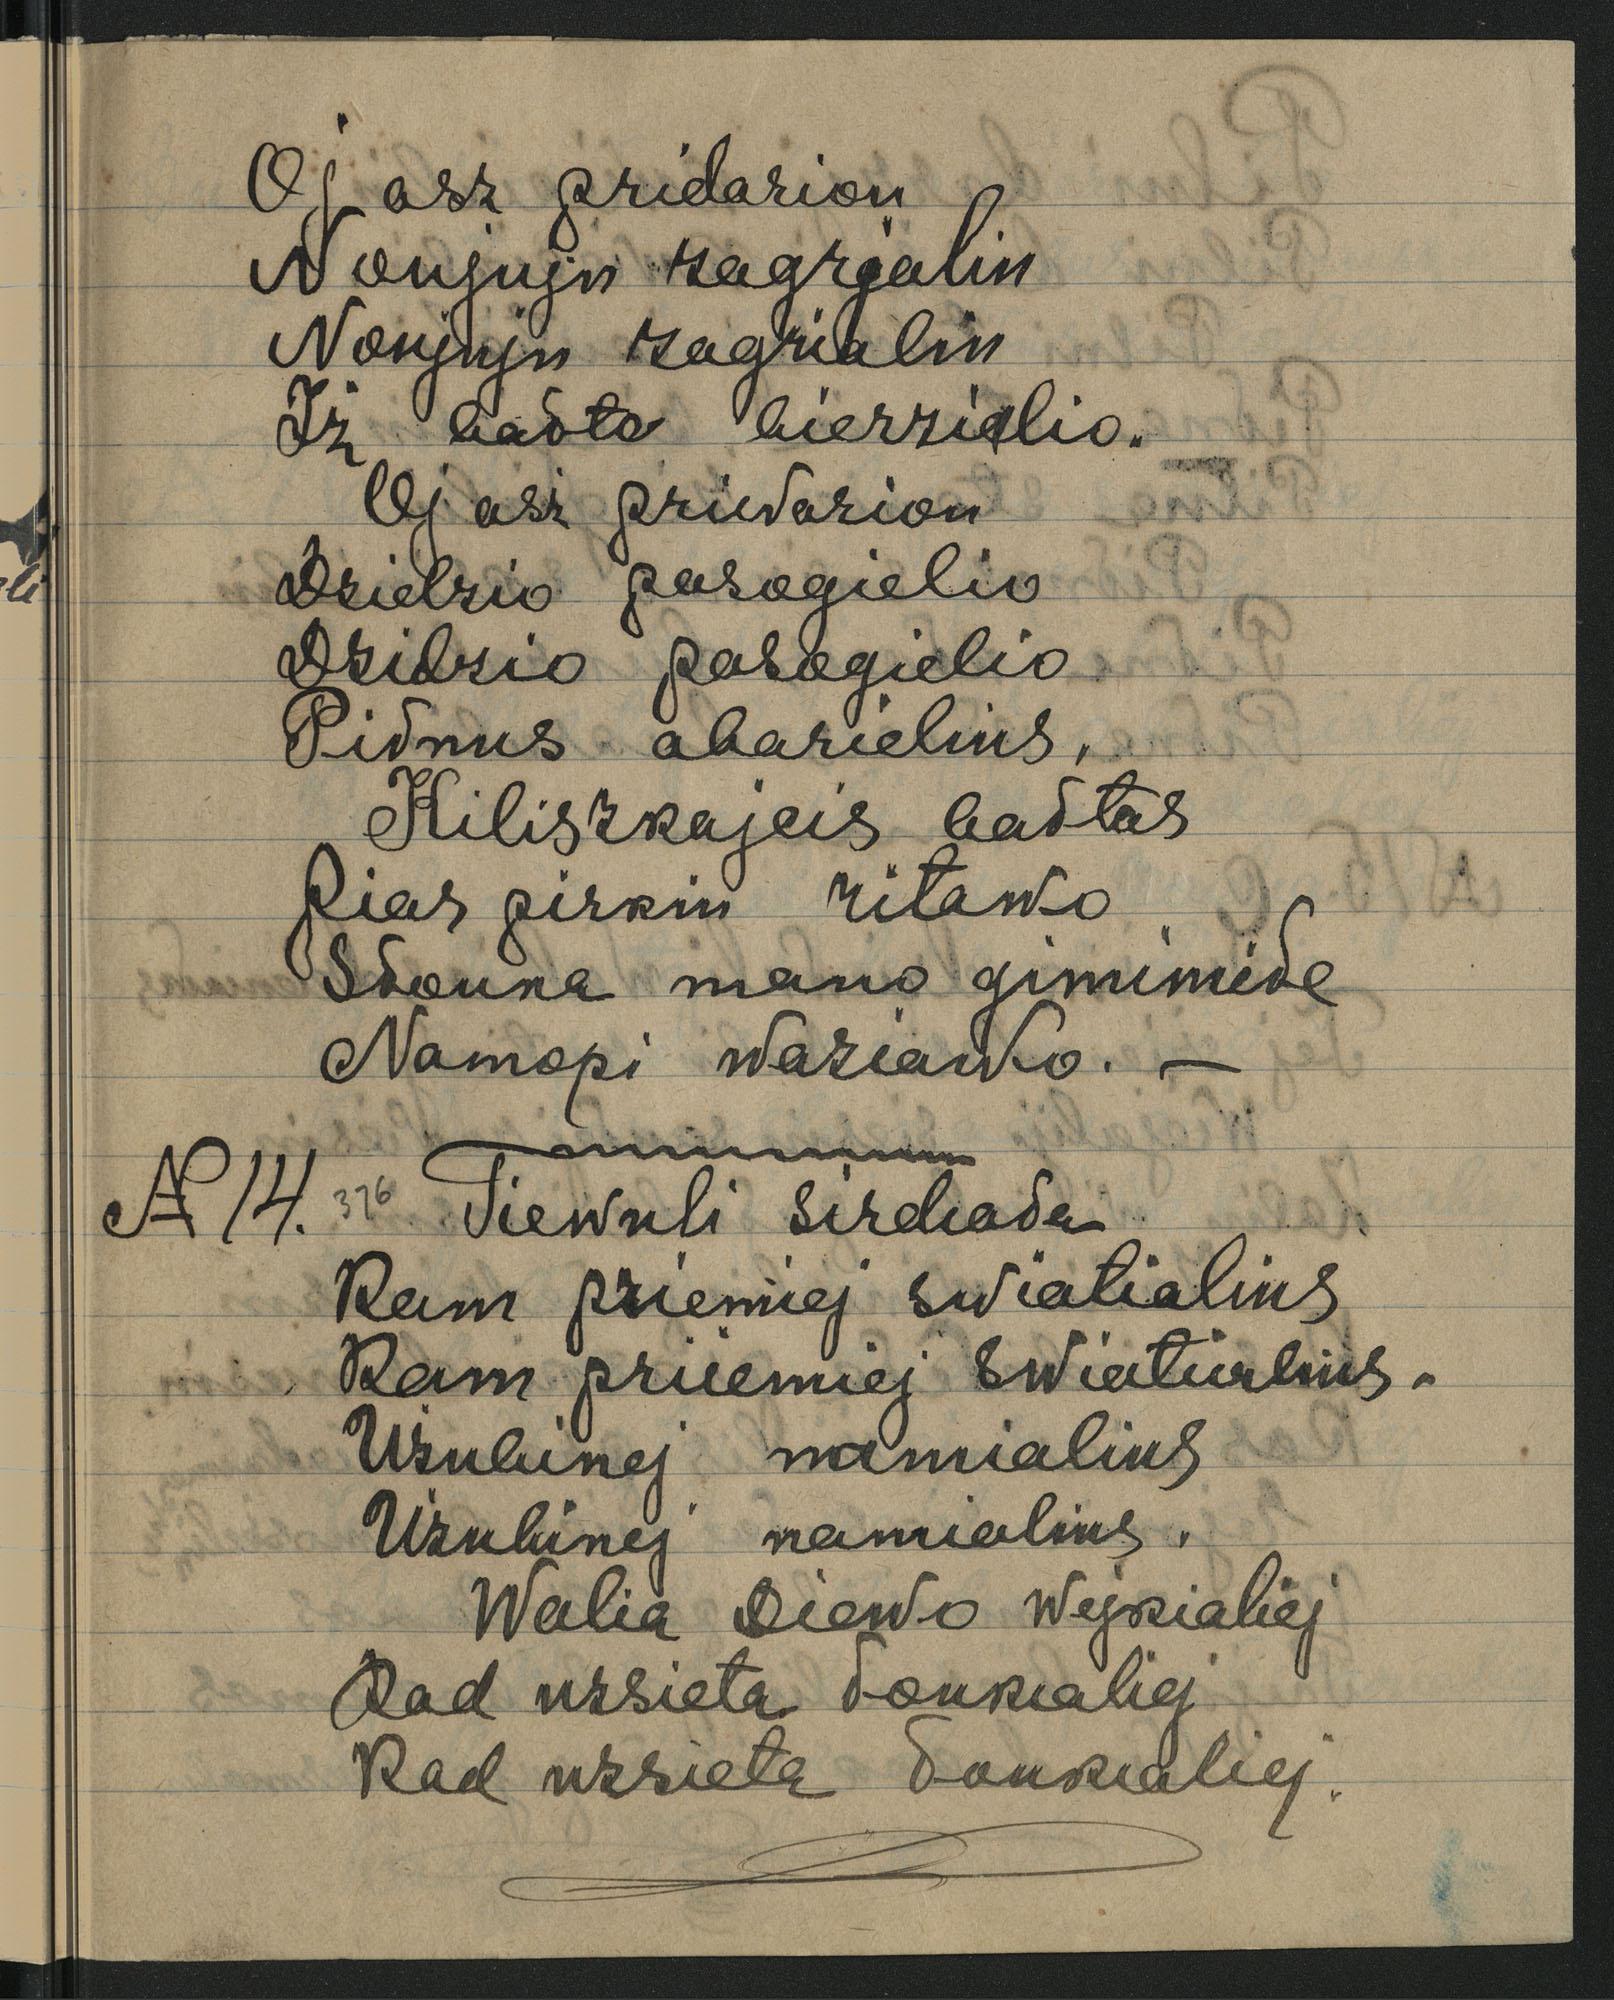 Oj asz pridarion
Noujujn zagrialin
Noujujn zagrialin
Iż bałto bierzialio.
Oj asz priwarion
Dzielzio pasogielio
Dzidzio pasogielio
Piłnus abarielius,
Kiliszkajcis bałtas
Piar pirkin ritawo
Słouna mano gimimiełe
Namopi wariawo. —
№ 14. 376 Tiewuli sirdała
Kam priemiej swiatialius
Kam priiemiej swiatiurlius.
Uzubinej namialius
Uzubinej namialius.
Walia Diewo Wejkialiej
Kad uzsieta łoukialiej
Kad uzsieta łoukialiej.